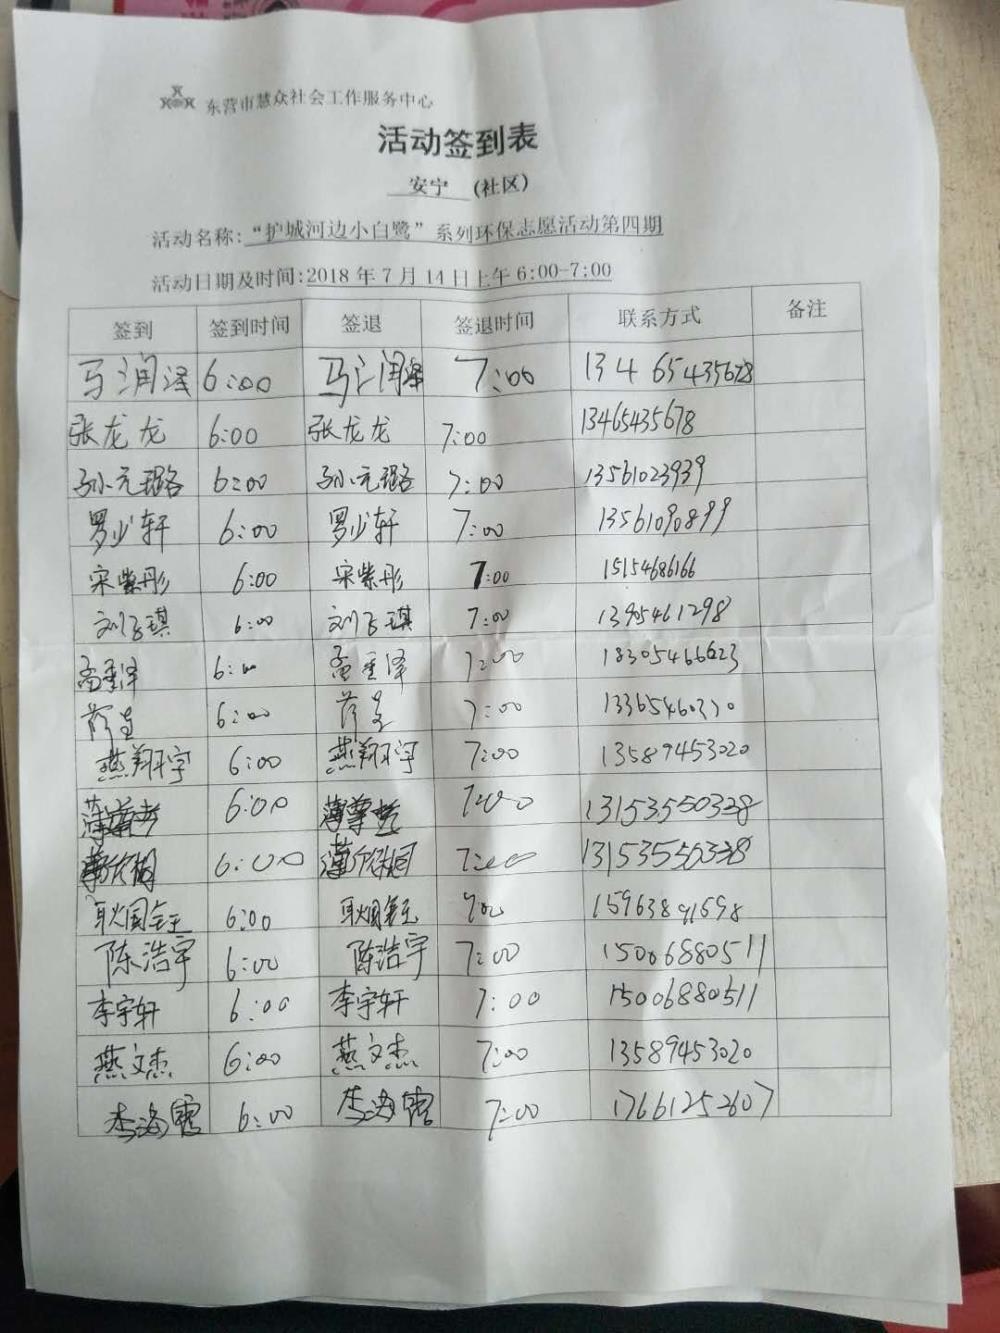 东营市慧众社会工作服务中心
活动签到表
安宁 (社区)
活动名称:“护城河边小白鹭”系列环保志愿活动第四期
活动日期及时间:2018年7月14日上午6:00-7:00
签到 签到时间 签退 签退时间 联系方式 备注
马润泽 6:00 马润泽 7:00
张龙龙 6:00 张龙龙 7:00 13465435678
孙元璐 6:00 孙元璐 7:00 13561023939
罗少轩 6:00 罗少轩 7:00 13561090899
宋紫彤 6:00 宋紫彤 7:00 15154686166
刘飞琪 6:00 刘飞琪 7:00 13905461298
孟垂泽 6:00 孟垂泽 7:00 18305466623
6:00 7:00
燕翔宇 6:00 燕翔宇 7:00 13589453020
6:00 7:00 13153550328
6:00 7:00
6:00 15963891598
陈浩宇 6:00 陈浩宇 7:00 15006880511
李宇轩 6:00 李宇轩 7:00 15006880511
燕文杰 6:00 燕文杰 7:00 13589453020
李海霞 6:00 李海霞 7:00 17661252607